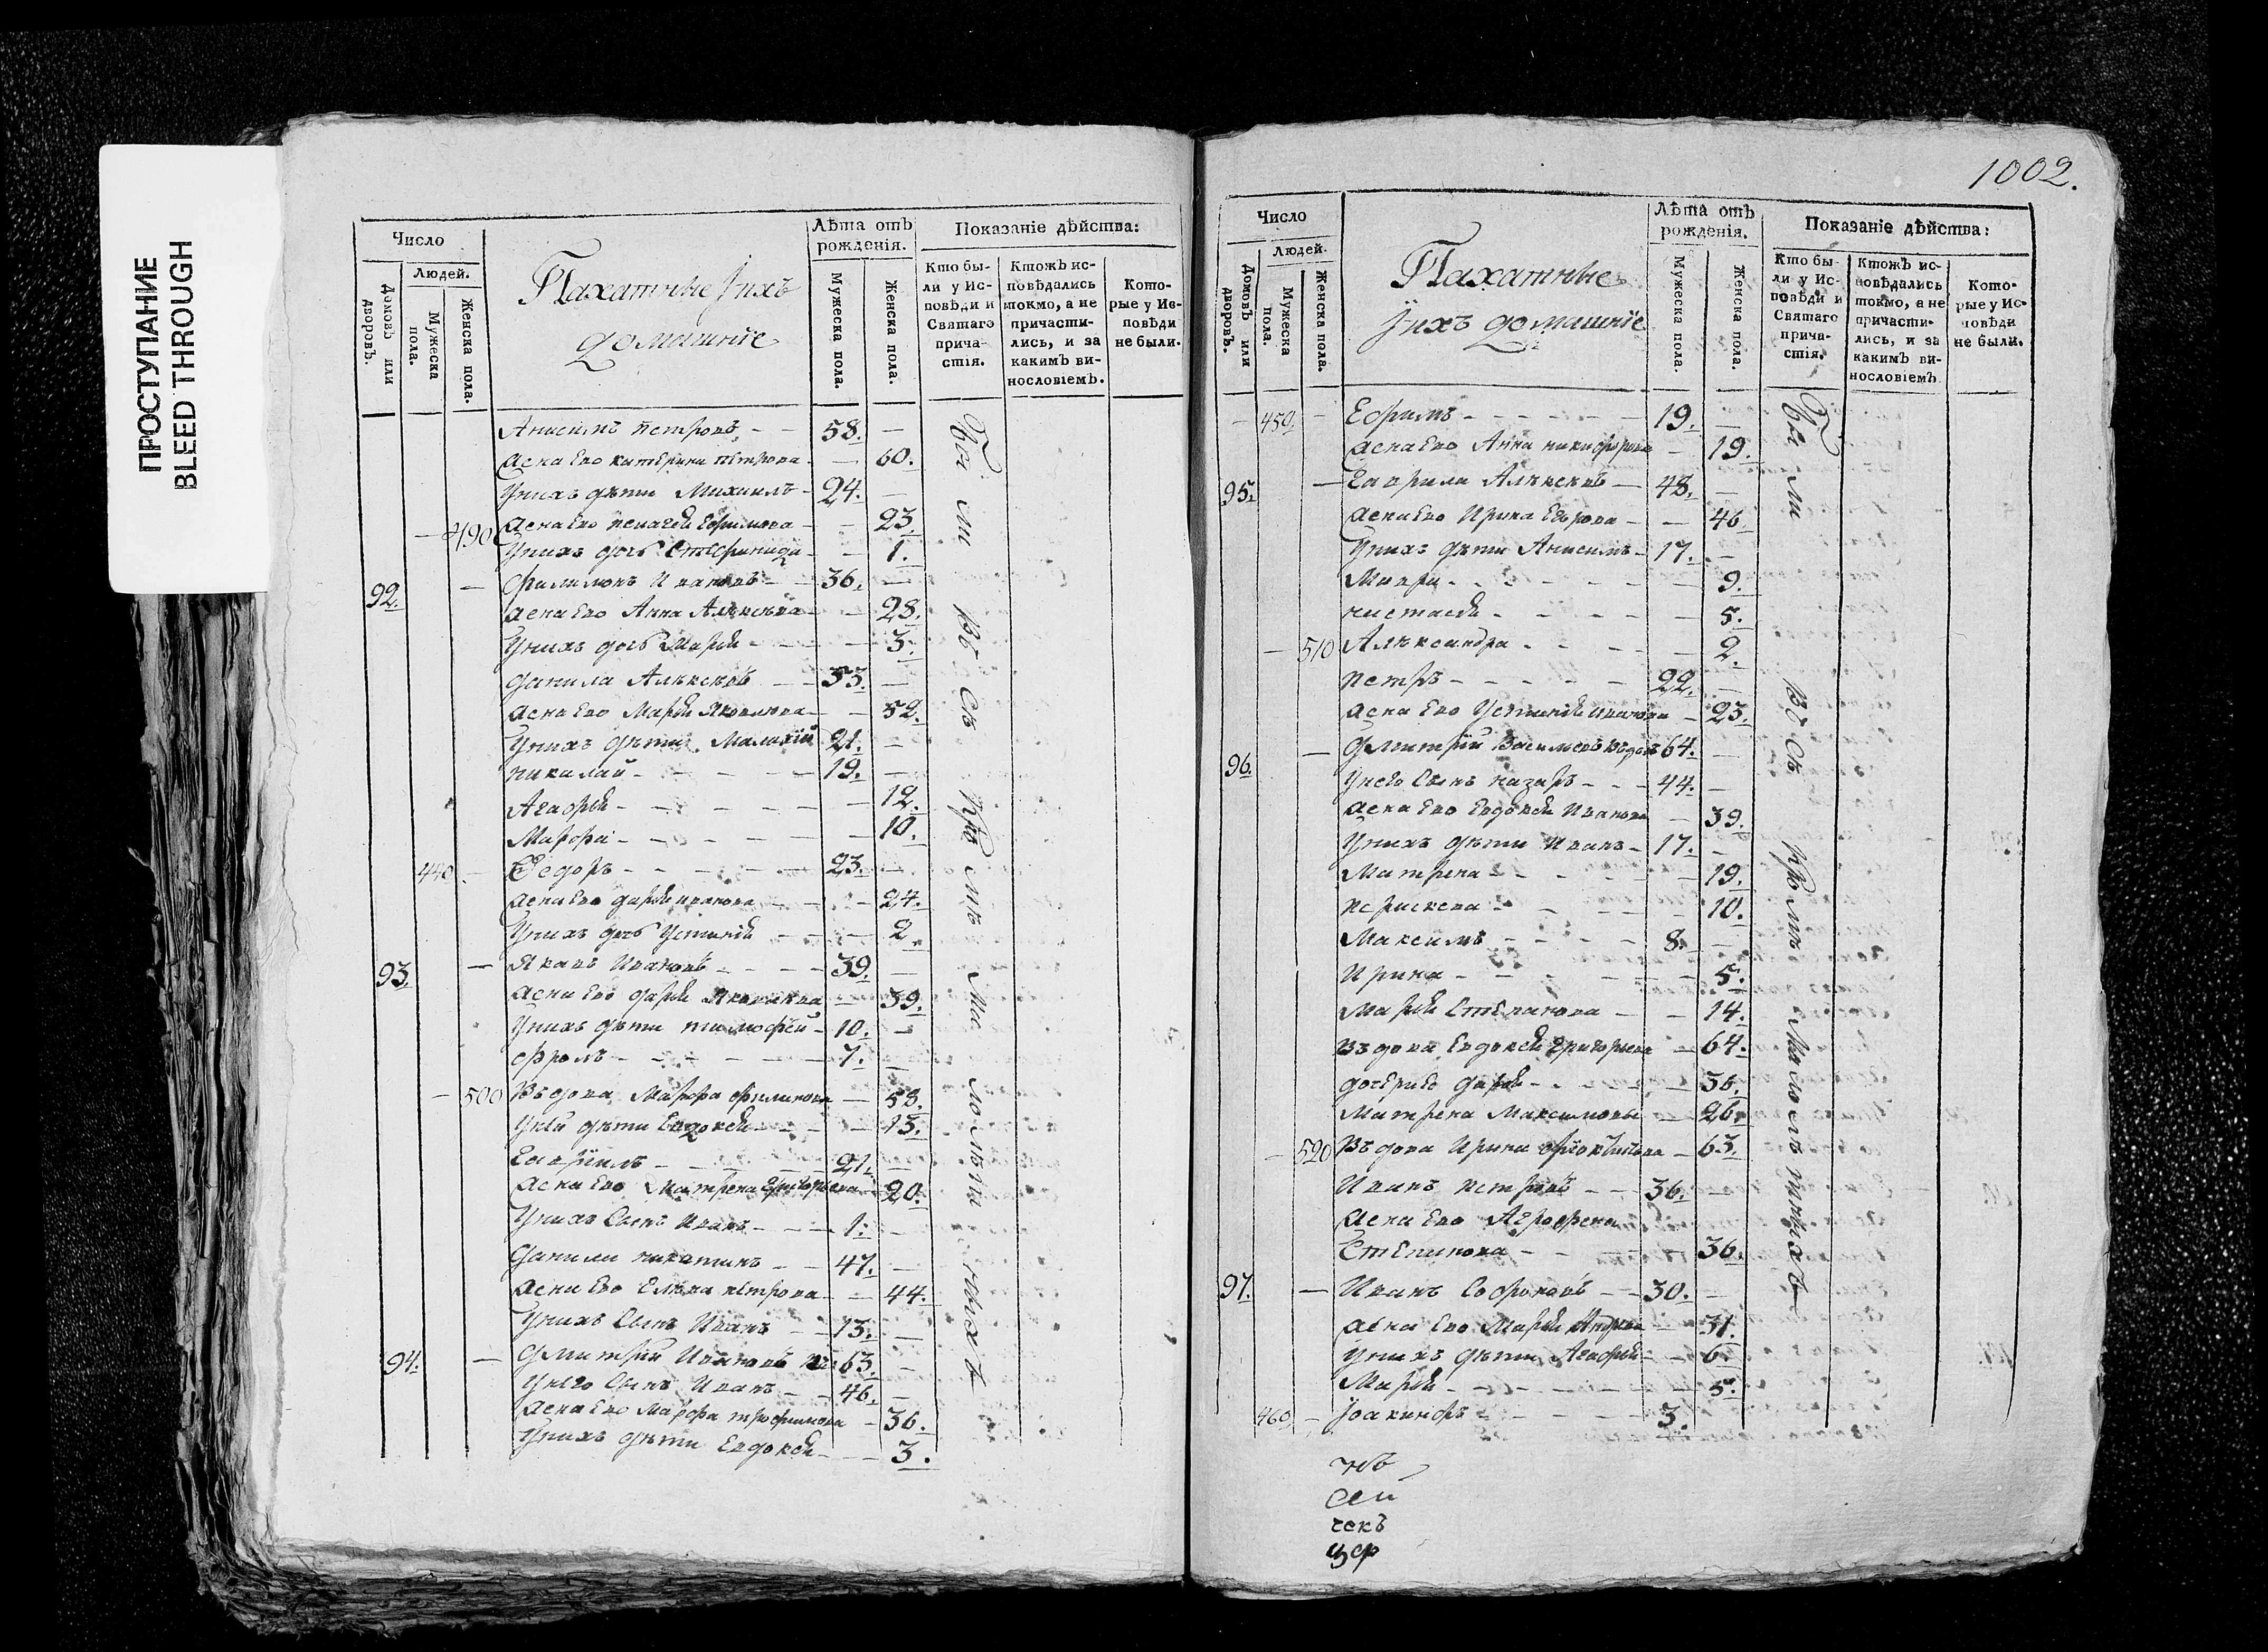 ПРОСТУПАНИЕ
BLEED THROUGH
Число
Людей.
Домовъ или дворовъ.
Мужеска пола.
Женска пола.
Пахатные ихъ
домашнїе
Лѣта отъ рожденія.
Мужеска пола.
Женска пола.
Показаніе дѣйства:
Кто были у Исповѣди и Святаго причастія.
Ктожъ исповѣдались токмо, а не причастились, и за какимъ винословіемъ.
Которые у Исповѣди не были.
Анисимъ Петровъ - - 58. -
жена ево катерина петрова - - 60.
У нихъ дѣти Михаилъ - 24. -
жена ево пелагѣя Ефимова - - 23
- 490 У нихъ дочь - - 1.
92. - филимонъ Ивановъ - 36. -
жена ево Анна Алексѣева - - 28.
У нихъ дочь Марья - - 3.
данила Алексѣевъ - 53. -
жена ево Марья Яковлева - - 52.
У нихъ дѣти Малахїй 21. -
николай - 19. -
Агафья - - 12.
Марфа - - 10.
440 - Ѳедоръ - 23. -
жена ево дарья иванова - - 24.
У нихъ дочь Устинья - - 2.
93. - Яковъ Ивановъ - 39. -
жена ево дарья Яковлева - 39.
У нихъ дѣти тимофѣй - 10. -
фролъ - 7. -
- 500 Въдова Марфа филипова - 58.
У ней дѣти Евдокея - - 13.
Гаврїилъ - 21. -
жена ево Матрена Григорьева - 20.
У нихъ сынъ Иванъ - 1. -
Данила никитинъ - 47. -
жена ево Елена петрова - - 44.
У нихъ сынъ Иванъ - 13. -
94. - Дмитрїй Ивановъ 63. -
У него сынъ Иванъ - 46. -
жена ево Марфа трофимова - 36.
У нихъ дѣти Евдокея - - 3.
Были въсѣ кромѣ малолѣтныхъ
1002.
Число
Людей.
Домовъ или дворовъ.
Мужеска пола.
Женска пола.
Пахатные
ихъ домашнїе
Лѣта отъ рожденія.
Мужеска пола.
Женска пола.
Показаніе дѣйства:
Кто были у Исповѣди и Святаго причастія.
Ктожъ исповѣдались токмо, а не причастились, и за какимъ винословіемъ.
Которые у Исповѣди не были.
- 450. - Ефимъ - 19. -
жена ево Анна никифорова - 19.
95. - Гаврила Алексѣевъ - 48. -
жена ево Ирина Егорова - - 46.
У нихъ дѣти Анисимъ - 17. -
Мавра - - 9.
настасья - - 5.
- 510 Александра - - 2.
петръ - 22. -
жена ево Устинья иванова - 23.
96. - Дмитрїй Васильевъ 64. -
У него сынъ назаръ - 44. -
жена ево Евдокея Иванова - 39.
У нихъ дѣти Иванъ - 17. -
Матрена - - 19.
парасковья - - 10.
Максимъ - 8. -
Ирина - - 5.
Марья Степанова - - 14.
Въдова Евдокея Григорьева - 64.
дочь дарья - - 36.
Матрена Максимова - 26.
- 520 Въдова Ирина - 63.
Иванъ петровъ - 36. -
жена ево Агрофена
Степанова - - 36.
97. - Иванъ Софоновъ - 30. -
жена ево Марья Андреева - 31.
У нихъ дѣти Агафья - - 6.
Марья - - 5.
460. - Їоакинфъ - 3.
Были въсѣ кромѣ малолѣтныхъ